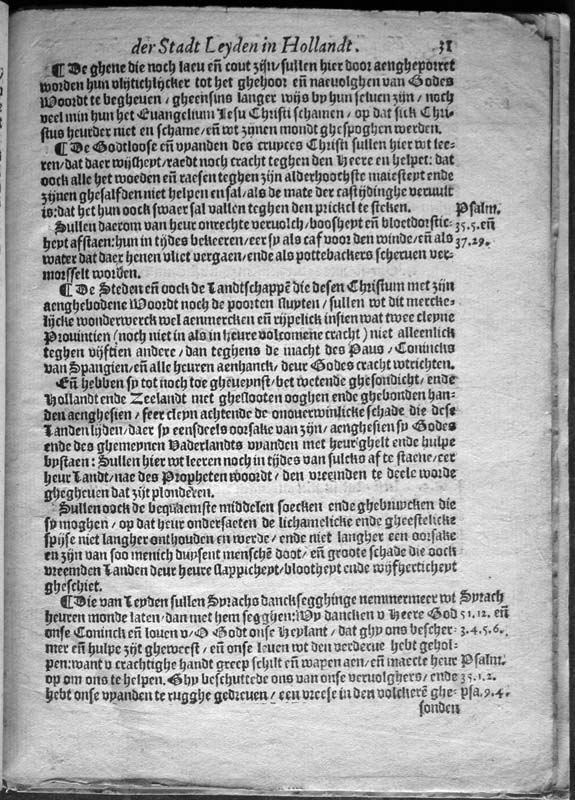 der Stadt Leyden in Hollandt. 31
¶ De ghene die noch laeu eñ cout zijn/ sullen hier door aengheporret
worden hun vlijtichlijcker tot het ghehoor eñ naevolghen van Godes
Woordt te begheven / gheensins langer wijs by hun selven zijn / noch
veel min hun het Euangelium Iesu Christi schamen / op dat sick Chri-
stus heurder niet en schame/ eñ wt zijnen mondt ghespoghen werden.
¶ De Godtloose eñ vyanden des cruyces Christi sullen hier wt lee-
ren/ dat daer wijsheyt/ raedt noch cracht teghen den Heere en helpet: dat
oock alle het woeden eñ raesen teghen zijn alderhoochste maiesteyt ende
zijnen ghesalfden niet helpen en sal/ als de mate der castijdinghe vervult
is: dat het hun oock swaer sal vallen teghen den prickel te steken.
Psalm.
Sullen daerom van heur onrechte vervolch/ boosheyt eñ bloetdorstic-
35.5. eñ
heyt afstaen: hun in tijds bekeeren/ eer sy als caf voor den winde/ eñ als
37.29.
water dat daer henen vliet vergaen/ ende als pottebackers scherven ver-
morsselt worden.
¶ De Steden eñ oock de Landtschappē die desen Christum met zijn
aenghebodene Woordt noch de poorten sluyten / sullen wt dit mercke-
lijcke wonderwerck wel aenmercken eñ rijpelick insien wat twee cleyne
Provintien (noch niet in als in heure volcomene cracht) niet alleenlick
teghen vijftien andere / dan teghens de macht des Paus / Conincks
van Spangien/ eñ alle heuren aenhanck/ deur Godes cracht wtrichten.
Eñ hebben sy tot noch toe gheveynst/ bet wetende ghesondicht/ ende
Hollandt ende Zeelandt met ghesloten ooghen ende ghebonden han-
den aenghesien / seer cleyn achtende de onoverwinlicke schade die dese
Landen lijden/ daer sy eensdeels oorsake van zijn/ aenghesien sy Godes
ende des ghemeynen Vaderlandts vyanden met heur ghelt ende hulpe
bystaen: Sullen hier wt leeren noch in tijdes van sulcks af te staene/ eer
heur Landt/ nae des Propheten woordt / den vreemden te deele worde
ghegheven dat zijt plonderen.
Sullen oock de bequaemste middelen soecken ende ghebruycken die
sy moghen / op dat heur ondersaeten de lichamelicke ende gheestelicke
spijse niet langher onthouden en werde / ende niet langher een oorsake
en zijn van soo menich duysent menschē doot/ eñ groote schade die oock
vreemden Landen deur heure slappicheyt/ blootheyt ende wijfherticheyt
gheschiet.
¶ Die van Leyden sullen Syrachs dancksegghinge nemmermeer wt
Syrach
heuren monde laten/ dan met hem seggen: Wy dancken v Heere God
51.12. eñ
onse Coninck eñ loven v/ O Godt onse Heylant / dat ghy ons bescher-
3.4.5.6.
mer eñ hulpe zijt gheweest / eñ onse leven wt den verderve hebt gehol-
pen: want v crachtighe handt greep schilt eñ wapen aen/ eñ maecte heur
Psalm.
op om ons te helpen. Ghy beschuttede ons van onse vervolghers/ ende
35.1.2.
hebt onse vyanden te rugghe gedreven / een vreese in den volckerē ghe-
psa.9.4.
sonden